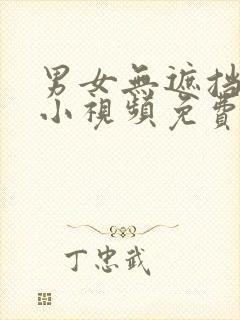 男女無遮挡
小視頻免費
丁忠武